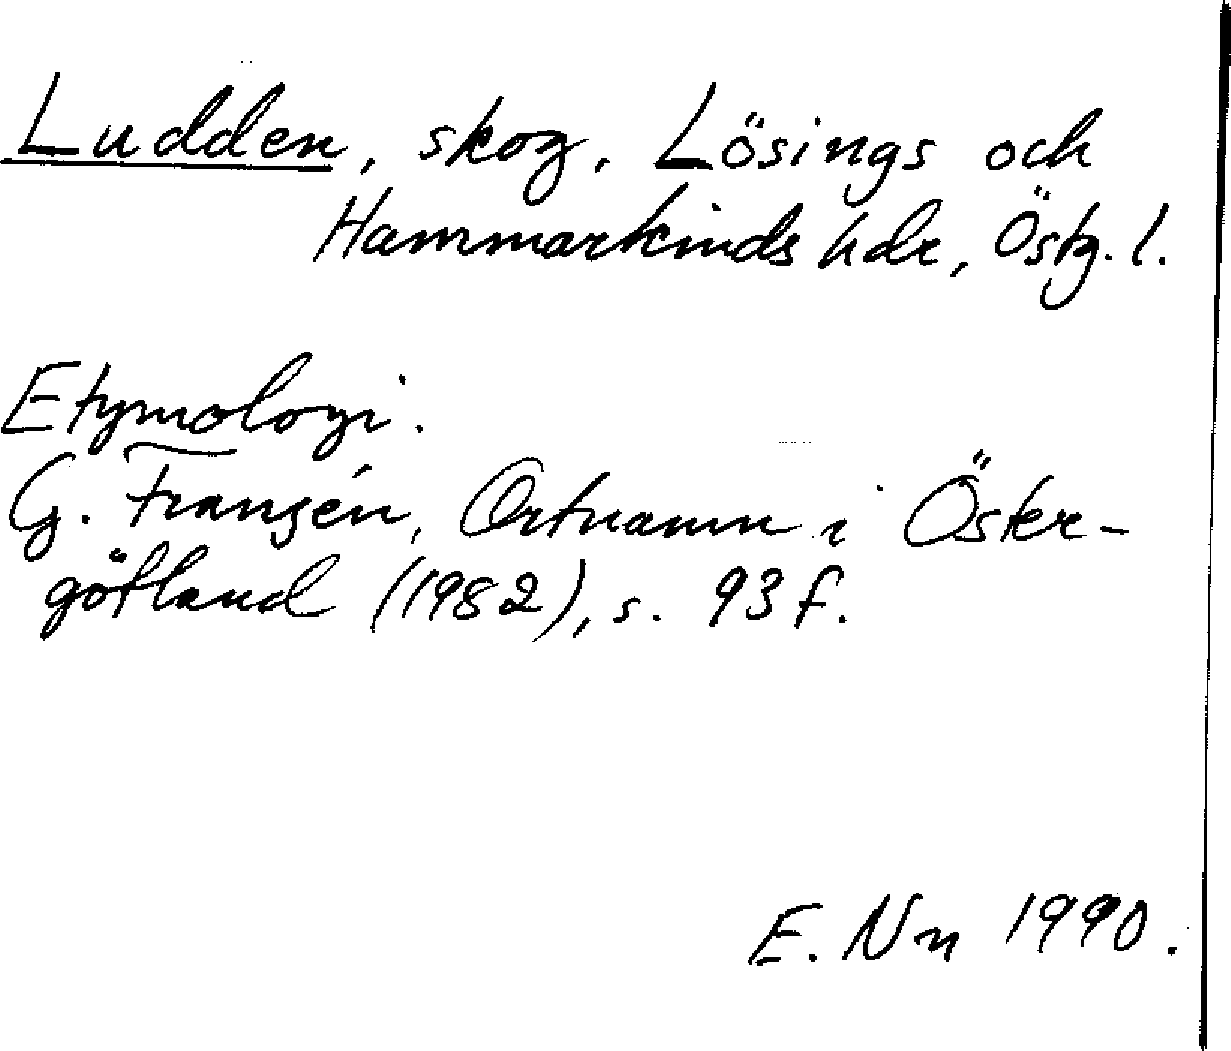 Ludden, skog, Lösings och
Hammarkinds hdr, Östg. l.
Etymologi.
G. Franzén, Ortnamn i Öster-
götland (1982), s. 93 f.
E. Nn 1990.